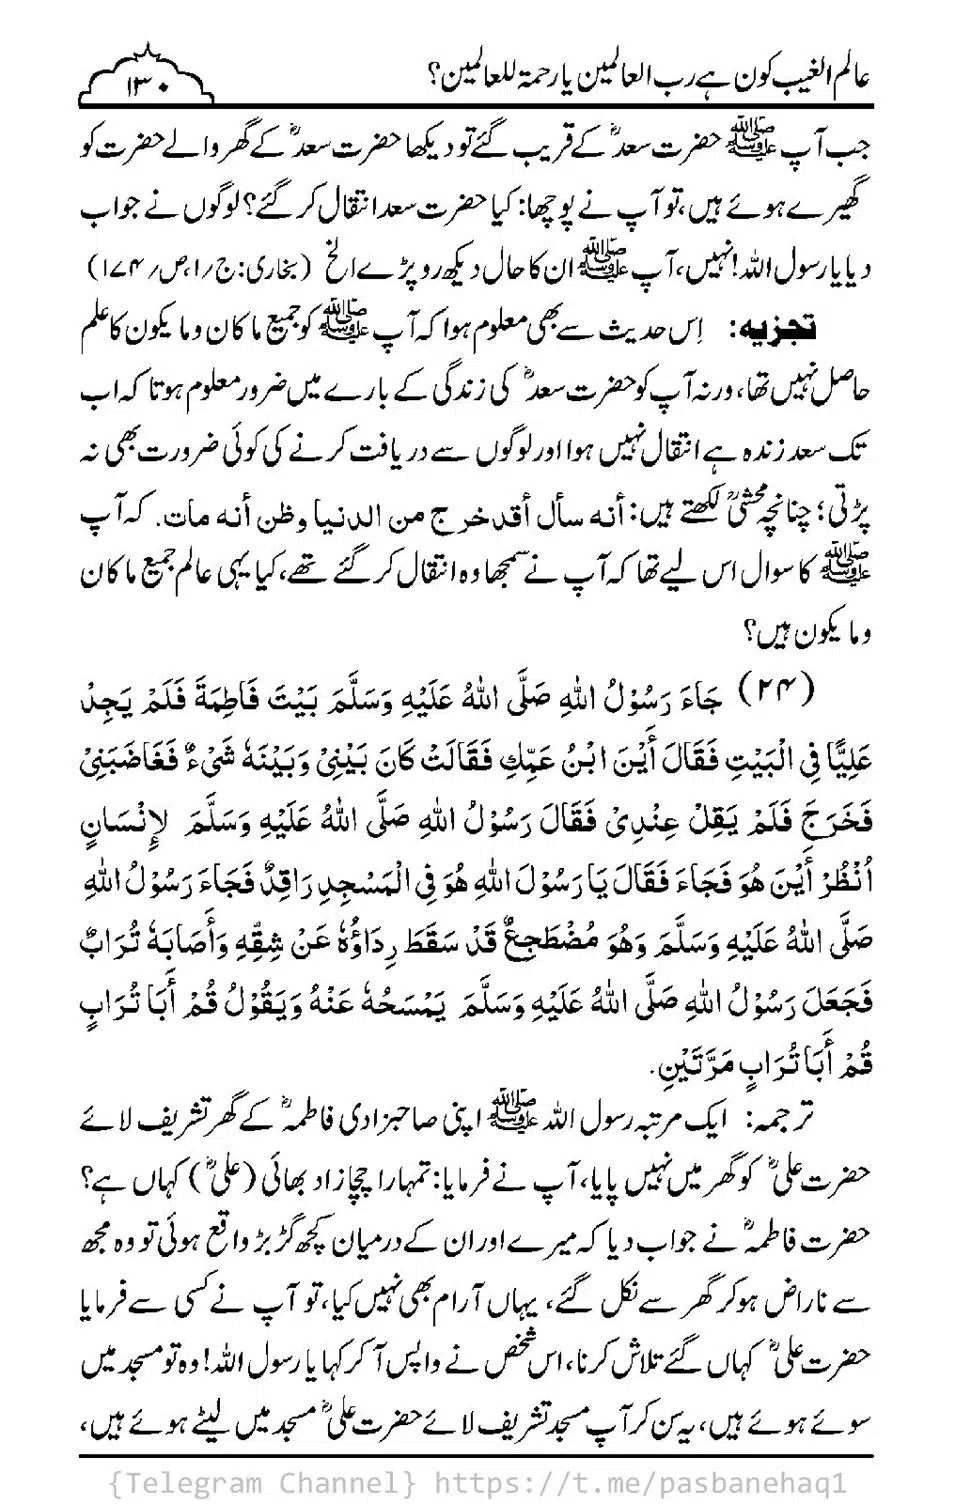 عالم الغیب کون ہے رب العالمین یا رحمۃ للعالمین؟
۱۳۰
جب آپ ﷺ حضرت سعدؓ کے قریب گئے تو دیکھا حضرت سعدؓ کے گھر والے حضرت کو
گھیرے ہوئے ہیں، تو آپ نے پوچھا: کیا حضرت سعد انتقال کر گئے؟ لوگوں نے جواب
دیا یا رسول اللہ! نہیں، آپ ﷺ ان کا حال دیکھ رو پڑے الخ (بخاری: ج/۱، ص/۱۷۴)
تجزیہ: اِس حدیث سے بھی معلوم ہوا کہ آپ ﷺ کو جمیع ما کان وما یکون کا علم
حاصل نہیں تھا، ورنہ آپ کو حضرت سعدؓ کی زندگی کے بارے میں ضرور معلوم ہوتا کہ اب
تک سعد زندہ ہے انتقال نہیں ہوا اور لوگوں سے دریافت کرنے کی کوئی ضرورت بھی نہ
پڑتی؛ چنانچہ محشیؒ لکھتے ہیں: أنه سأل أقد خرج من الدنيا وظن أنه مات. کہ آپ
ﷺ کا سوال اس لیے تھا کہ آپ نے سمجھا وہ انتقال کر گئے تھے، کیا یہی عالم جمیع ما کان
وما یکون ہیں؟
(۲۴) جَاءَ رَسُوْلُ اللهِ صَلَّى اللهُ عَلَيْهِ وَسَلَّمَ بَيْتَ فَاطِمَةَ فَلَمْ يَجِدْ
عَلِيًّا فِي الْبَيْتِ فَقَالَ أَيْنَ ابْنُ عَمِّكِ فَقَالَتْ كَانَ بَيْنِيْ وَبَيْنَهٗ شَيْءٌ فَغَاضَبَنِيْ
فَخَرَجَ فَلَمْ يَقِلْ عِنْدِيْ فَقَالَ رَسُوْلُ اللهِ صَلَّى اللهُ عَلَيْهِ وَسَلَّمَ لِإِنْسَانٍ
اُنْظُرْ أَيْنَ هُوَ فَجَاءَ فَقَالَ يَا رَسُوْلَ اللهِ هُوَ فِي الْمَسْجِدِ رَاقِدٌ فَجَاءَ رَسُوْلُ اللهِ
صَلَّى اللهُ عَلَيْهِ وَسَلَّمَ وَهُوَ مُضْطَجِعٌ قَدْ سَقَطَ رِدَاؤُهٗ عَنْ شِقِّهٖ وَأَصَابَهٗ تُرَابٌ
فَجَعَلَ رَسُوْلُ اللهِ صَلَّى اللهُ عَلَيْهِ وَسَلَّمَ يَمْسَحُهٗ عَنْهُ وَيَقُوْلُ قُمْ أَبَا تُرَابٍ
قُمْ أَبَا تُرَابٍ مَرَّتَيْنِ.
ترجمہ: ایک مرتبہ رسول اللہ ﷺ اپنی صاحبزادی فاطمہؓ کے گھر تشریف لائے
حضرت علیؓ کو گھر میں نہیں پایا، آپ نے فرمایا: تمہارا چچازاد بھائی (علیؓ) کہاں ہے؟
حضرت فاطمہؓ نے جواب دیا کہ میرے اور ان کے درمیان کچھ گڑبڑ واقع ہوئی تو وہ مجھ
سے ناراض ہو کر گھر سے نکل گئے، یہاں آرام بھی نہیں کیا، تو آپ نے کسی سے فرمایا
حضرت علیؓ کہاں گئے تلاش کرنا، اس شخص نے واپس آ کر کہا یا رسول اللہ! وہ تو مسجد میں
سوئے ہوئے ہیں، یہ سن کر آپ مسجد تشریف لائے حضرت علیؓ مسجد میں لیٹے ہوئے ہیں،
{Telegram Channel} https://t.me/pasbanehaq1